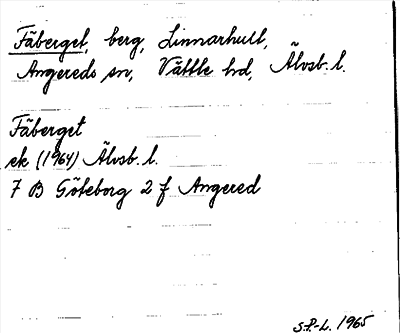 Fäberget, berg, Linnarhult,
Angereds sn, Vättle hd, Älvsb. l.
Fäberget
ek (1964) Älvsb. l.
7 B Göteborg 2 f Angered
S.P.-L. 1965